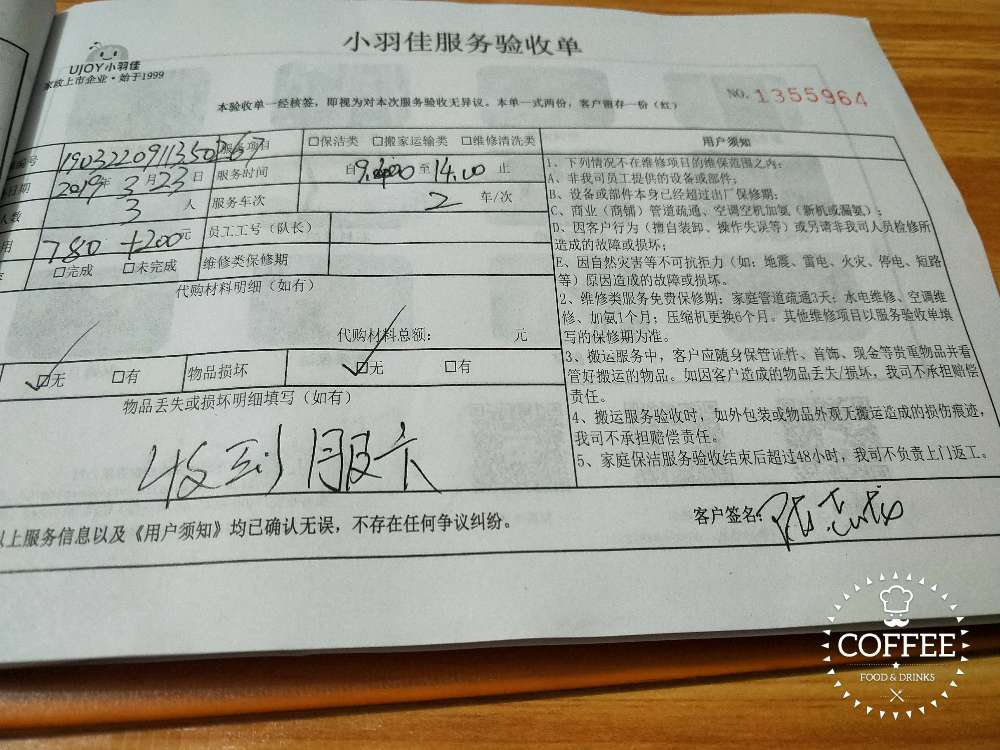 小羽佳服务验收单
UJOY小羽佳
家政上市企业·始于1999
本验收单一经核签，即视为对本次服务验收无异议。本单一式两份，客户留存一份（红）
NO. 1355964
编号 服务项目 □保洁类 □搬家运输类 □维修清洗类
日期 2019年3月23日 服务时间 自 至14.00止
人数 3人 服务车次 2车/次
用 780+200元 员工工号（队长）
□完成 □未完成 维修类保修期
代购材料明细（如有）
代购材料总额： 元
☑无 □有 物品损坏 ☑无 □有
物品丢失或损坏明细填写（如有）
收到 服卡
以上服务信息以及《用户须知》均已确认无误，不存在任何争议纠纷。
用户须知
1、下列情况不在维修项目的维保范围之内：
A、非我司员工提供的设备或部件；
B、设备或部件本身已经超过出厂保修期；
C、商业（商铺）管道疏通、空调空机加氨（新机或漏氨）；
D、因客户行为（擅自装卸、操作失误等）或另请非我司人员检修所
造成的故障或损坏；
E、因自然灾害等不可抗拒力（如：地震、雷电、火灾、停电、短路
等）原因造成的故障或损坏。
2、维修类服务免费保修期：家庭管道疏通3天；水电维修、空调维
修、加氨1个月；压缩机更换6个月。其他维修项目以服务验收单填
写的保修期为准。
3、搬运服务中，客户应随身保管证件、首饰、现金等贵重物品并看
管好搬运的物品。如因客户造成的物品丢失/损坏，我司不承担赔偿
责任。
4、搬运服务验收时，如外包装或物品外观无搬运造成的损伤痕迹，
我司不承担赔偿责任。
5、家庭保洁服务验收结束后超过48小时，我司不负责上门返工。
客户签名：
COFFEE
FOOD & DRINKS